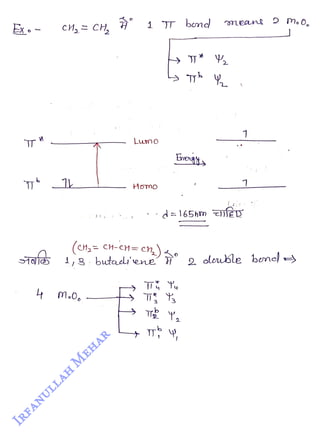 Ex.- CH₂ = CH₂ में 1 π bond means 2 M.O.
π* Ψ₂
πᵇ Ψ₂
π* Lumo 1
Energy
πᵇ 1⇂ Homo 1
d = 165nm चाहिए
(CH₂ = CH-CH = CH₂)
जबकि 1,3 butadiene में 2 double bond ⇒
4 M.O. π₄* Ψ₄
π₃* Ψ₃
π₂ᵇ Ψ₂
π₁ᵇ Ψ₁
IRFANULLAH MEHAR